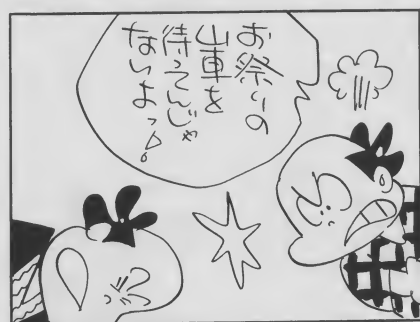 お祭りの
山車を
待ってんじゃ
ないよっ!